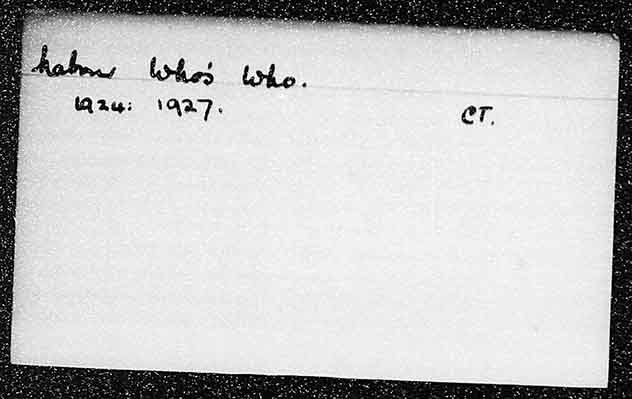 Labour Who's Who.
1924: 1927.
CT.